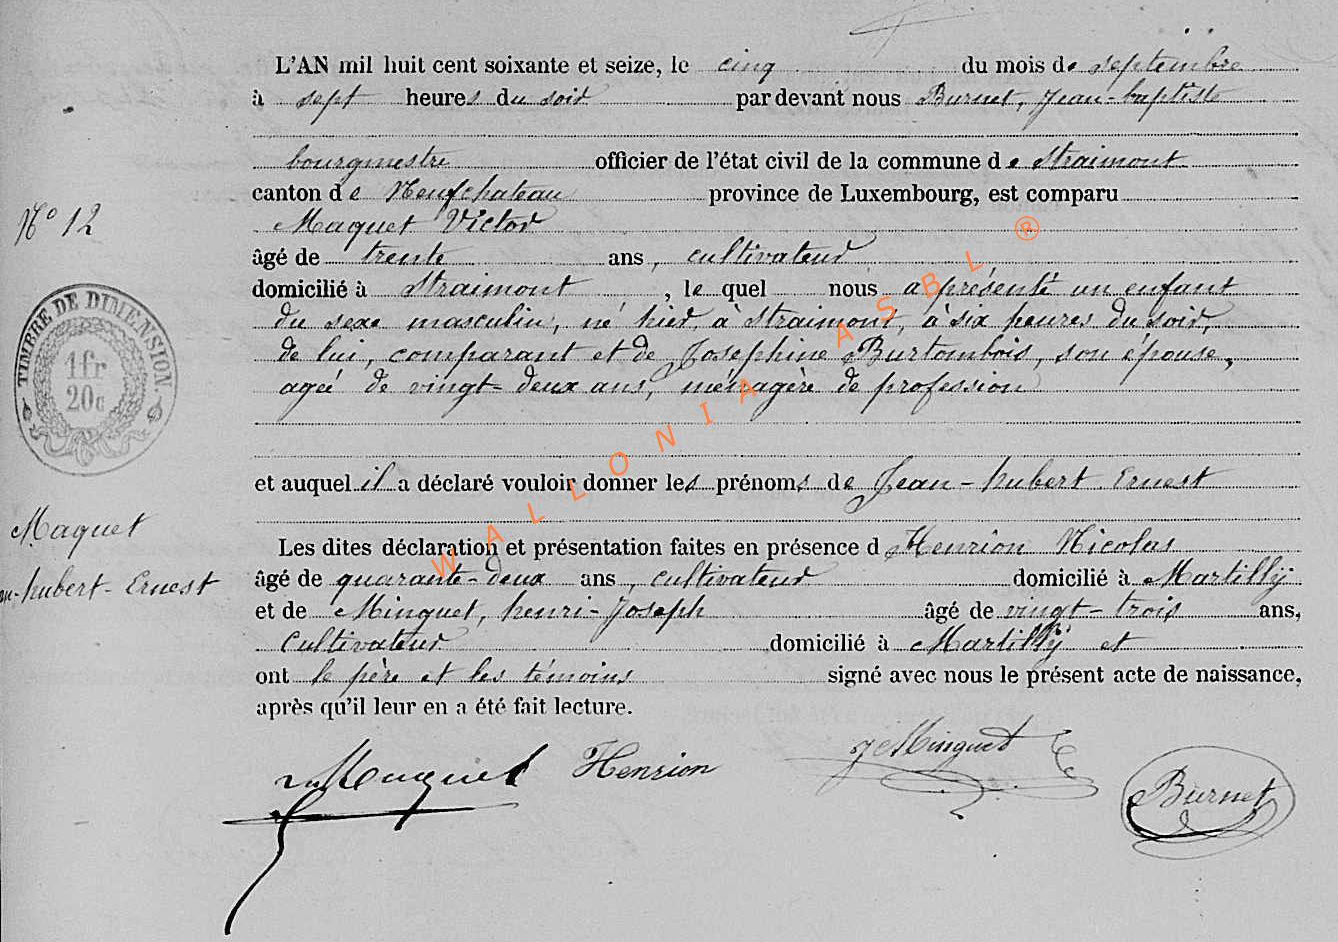 L'AN mil huit cent soixante et seize, le cinq du mois de septembre
à sept heures du soir par devant nous Burnet, Jean-baptiste
bourgmestre officier de l'état civil de la commune de Straimont
canton de Neufchateau province de Luxembourg, est comparu
N° 12
Maquet Victor
âgé de trente ans, cultivateur
domicilié à Straimont, le quel nous a présenté un enfant
du sexe masculin, né hier, à Straimont, à six heures du soir,
de lui, comparant et de Josephine Burtombois, son épouse,
agée de vingt-deux ans, ménagère de profession
TIMBRE DE DIMENSION
1 fr
20c
et auquel il a déclaré vouloir donner les prénoms de Jean-hubert Ernest
Maquet
-hubert-Ernest
Les dites déclaration et présentation faites en présence d Henrion Nicolas
âgé de quarante-deux ans, cultivateur domicilié à Martilly
et de Minguet, henri-Joseph âgé de vingt-trois ans,
Cultivateur domicilié à Martilly et
ont le père et les témoins signé avec nous le présent acte de naissance,
après qu'il leur en a été fait lecture.
Maquet Henrion Minguet Burnet
WALLONIA ASBL ®